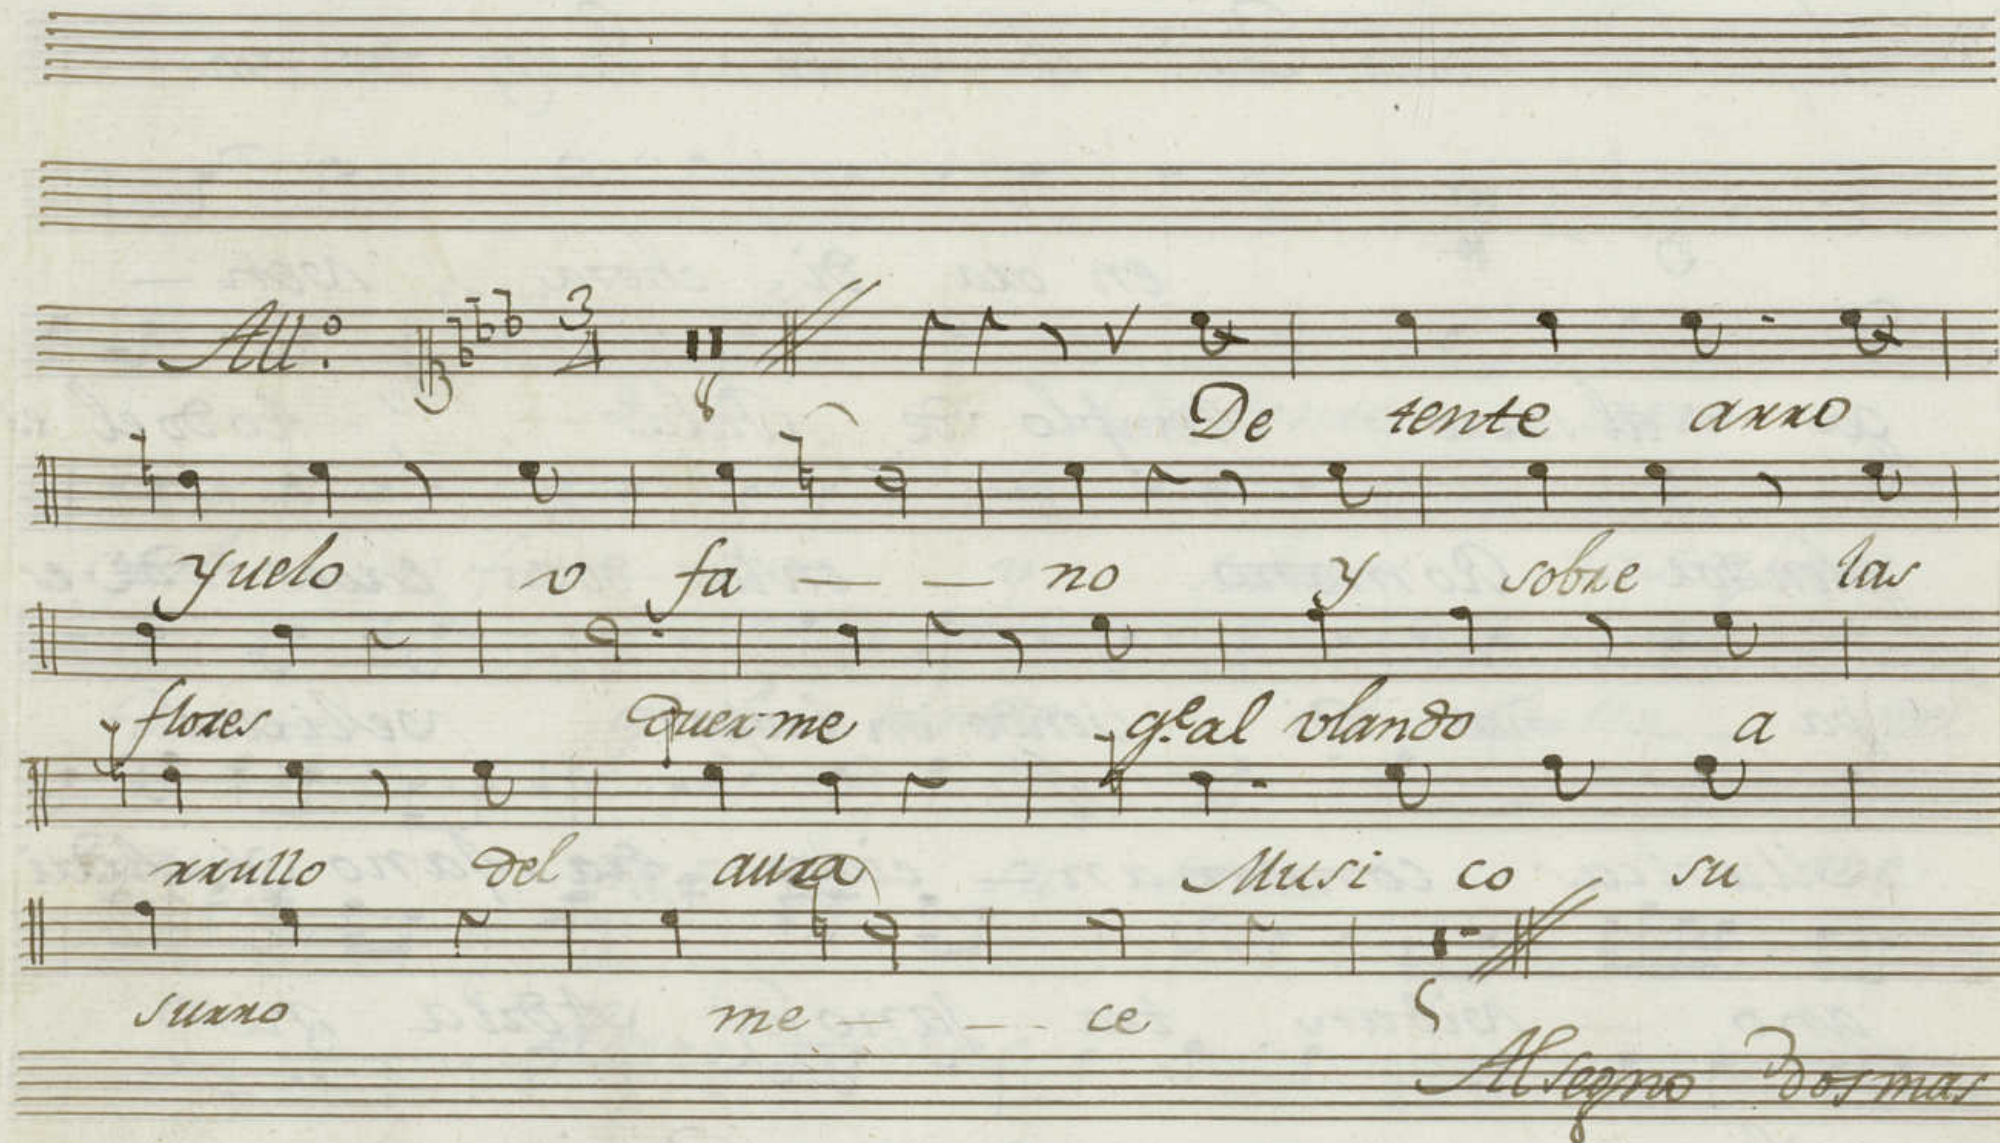 All.º 3/4 8
De tente arro
yuelo v fa — — no y sobre las
flores duerme q.e al vlando a
rrullo del aura Musi co su
surro me — — ce 5
Al segno Dos mas